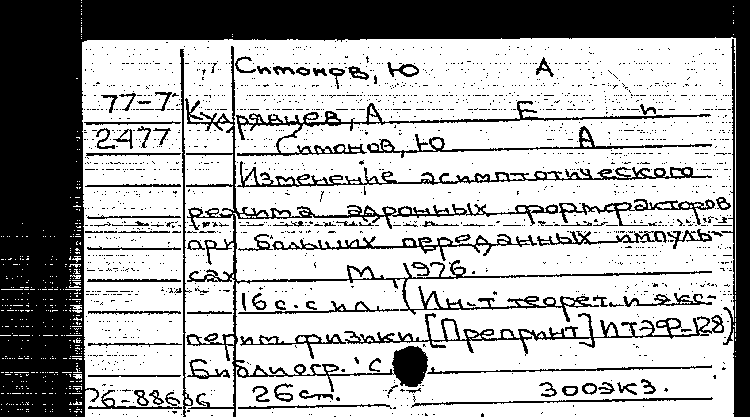 Симонов, Ю А
77-7 Кудрявцев, А Е и
2477 Симонов, Ю А
Изменение асимптотического
режима адронных формфакторов
при больших переданных импуль-
сах М., 1976.
16 с. с ил. (Ин-т теорет. и экс-
перим. физики. [Препринт] ИТЭФ-128)
Библиогр.: с.
26 ст. 300экз.